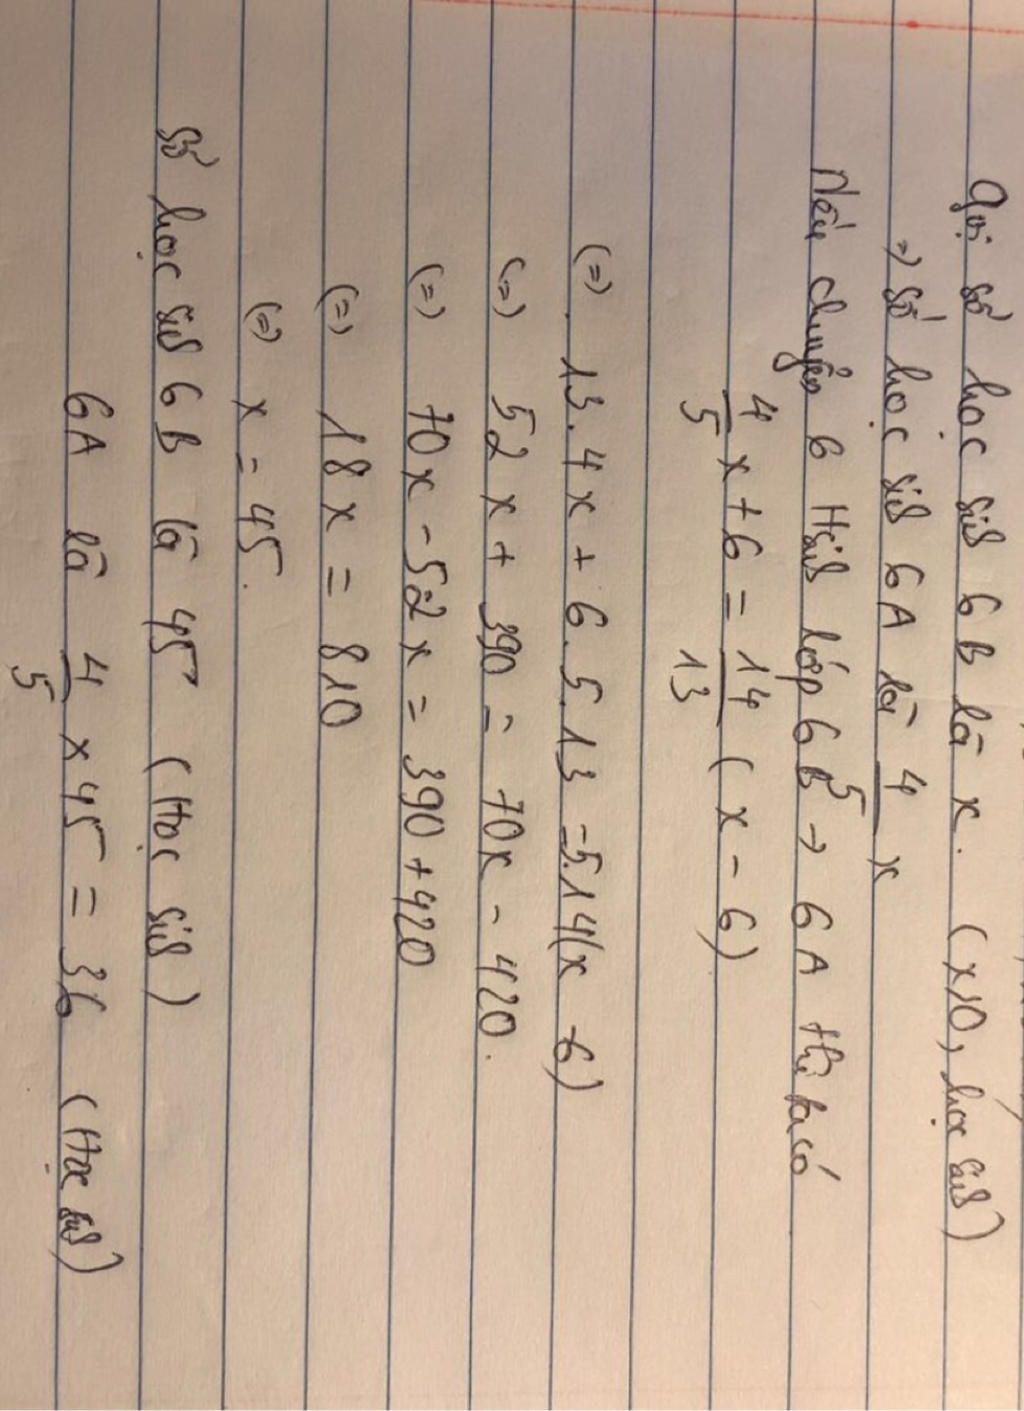 Gọi số học sinh 6B là x. (x>0, học sinh)
=> số học sinh 6A là 4/5 x
Nếu chuyển 6 Hsinh lớp 6B → 6A thì ta có
4/5 x + 6 = 14/13 (x - 6)
(=) 13.4x + 6.5.13 = 5.14(x - 6)
(=) 52x + 390 = 70x - 420.
(=) 70x - 52x = 390 + 420
(=) 18x = 810
(=) x = 45.
Số học sinh 6B là 45 (Học sinh)
6A là 4/5 x 45 = 36 (Học sinh)